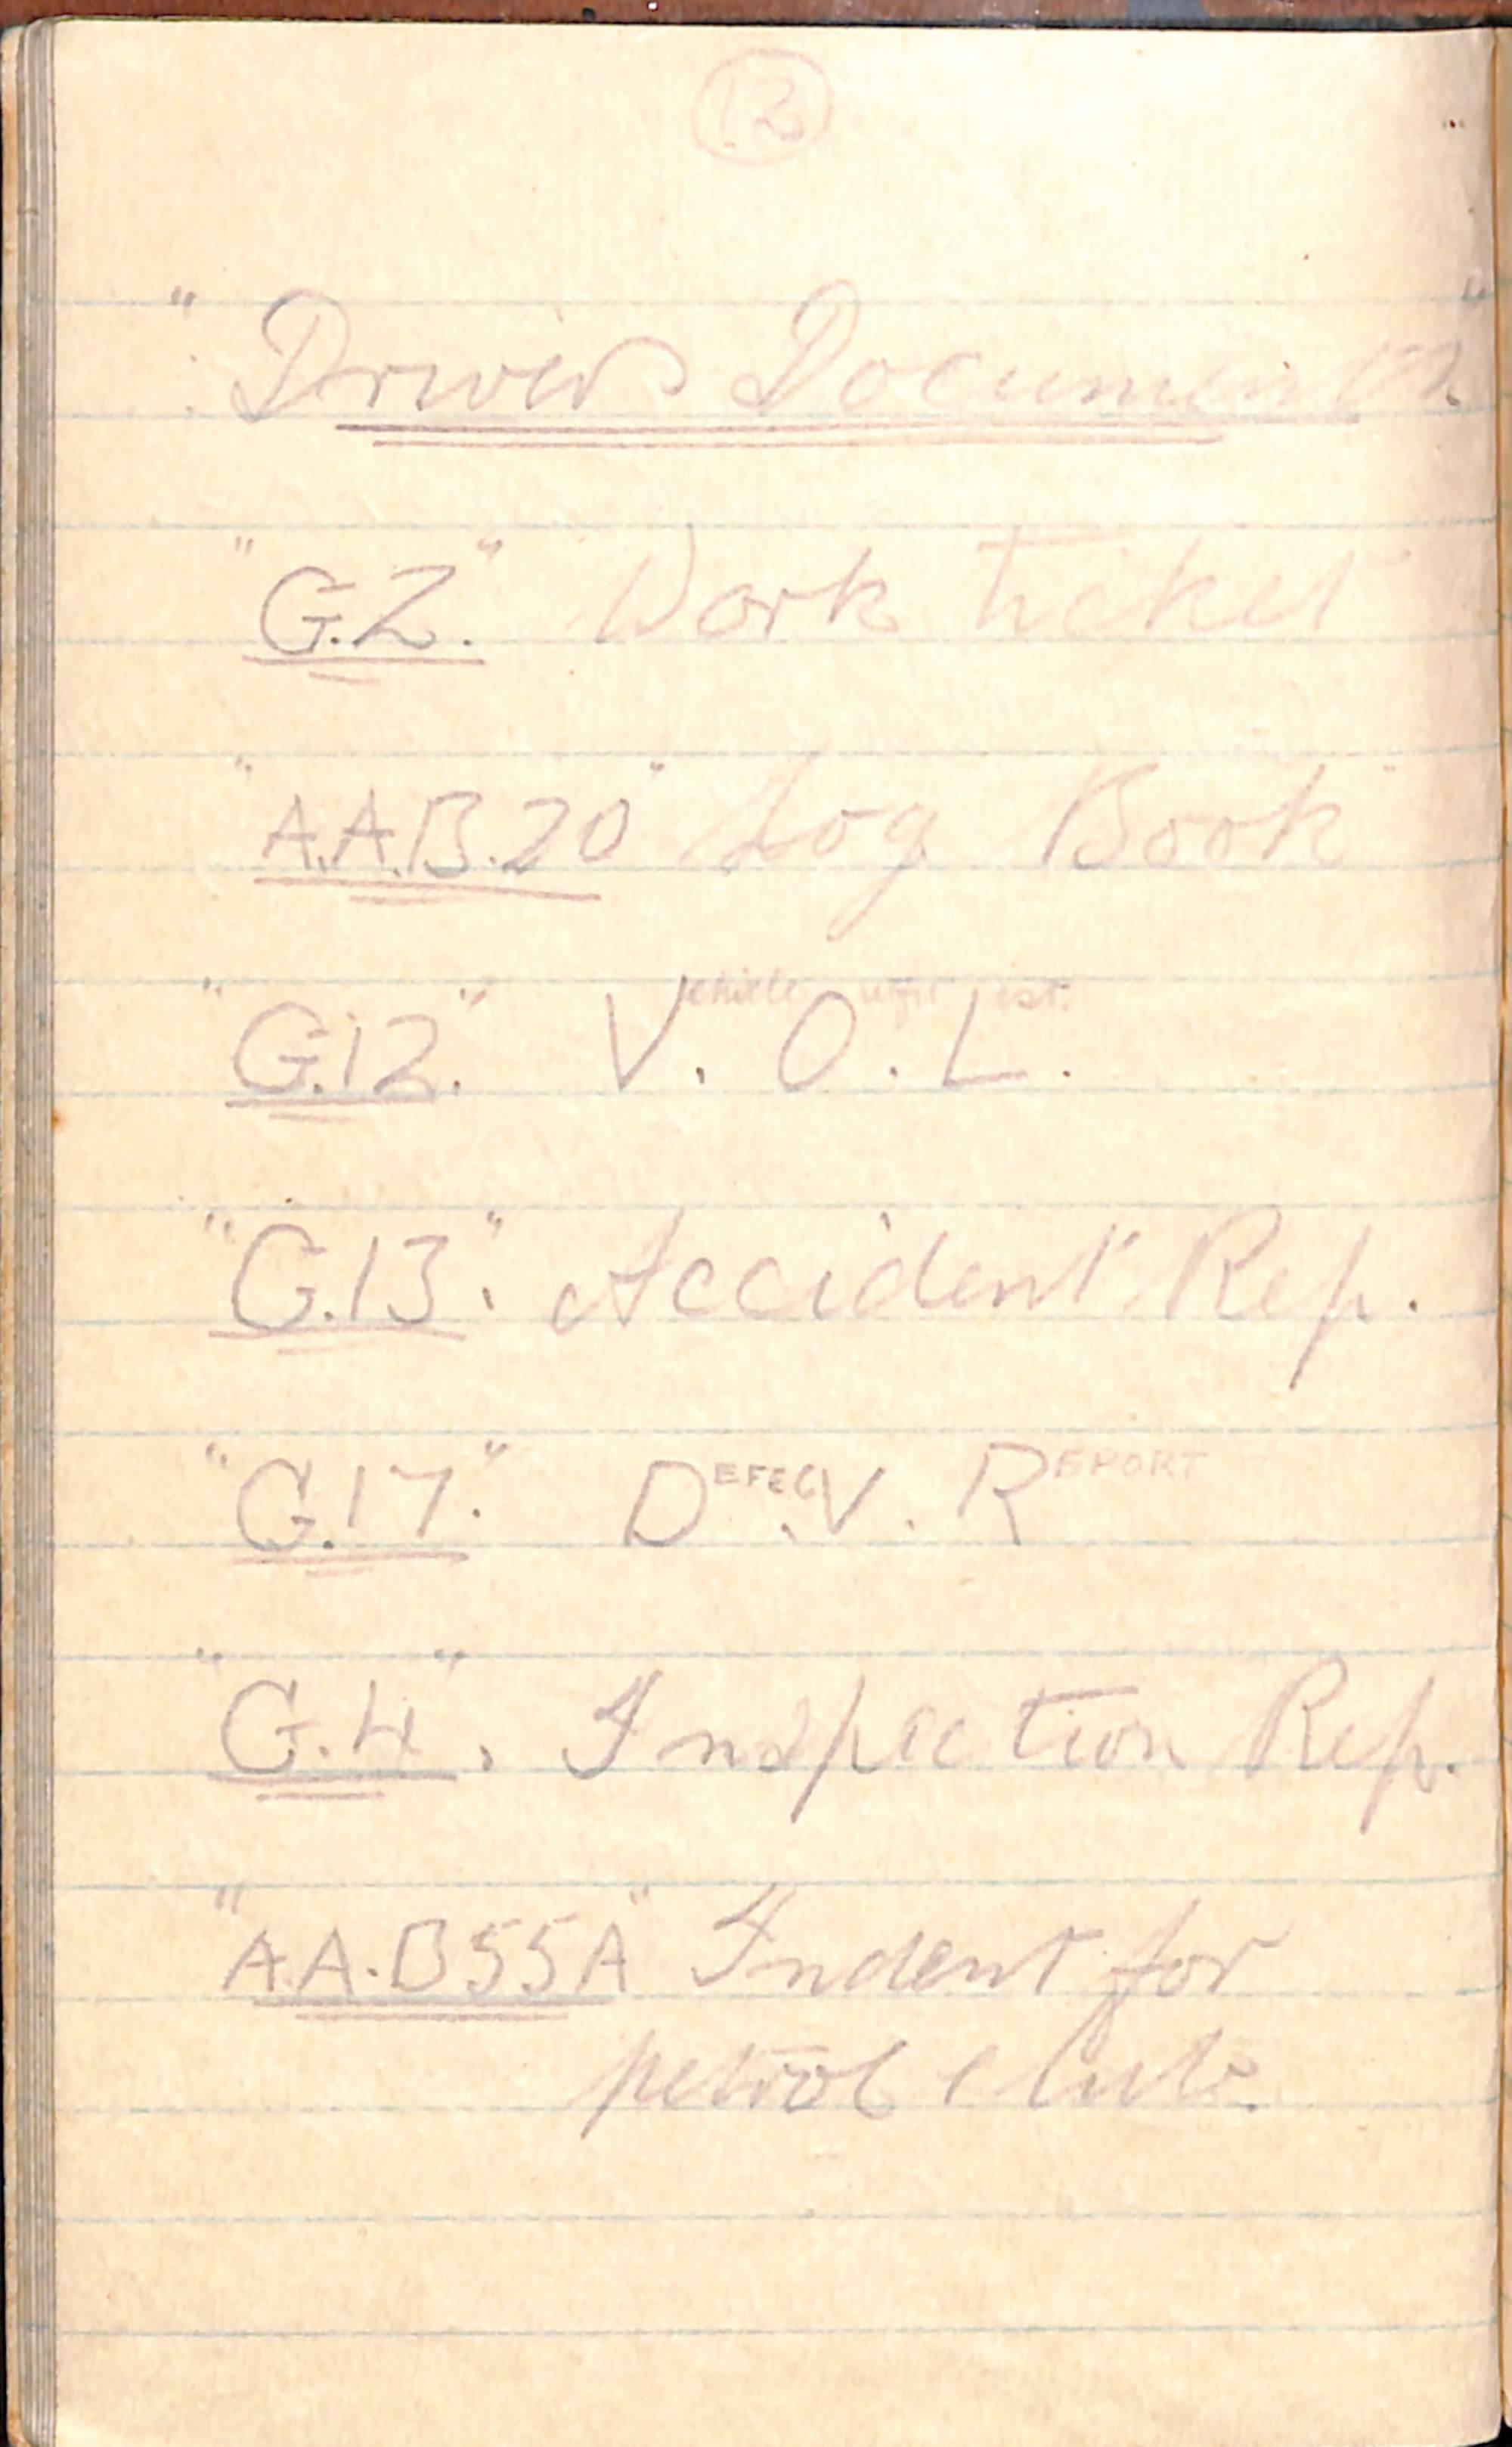 12
"Drivers Documents"
"G.2." Work Ticket
"A.A.B.20" Log Book
"G.12." Vehicle. O. L.
"G.13". Accident Rep.
"G.17." DEFEC.V. REPORT
"G.4". Inspection Rep.
"A.A.B55A" Indent for
petrol & lub.